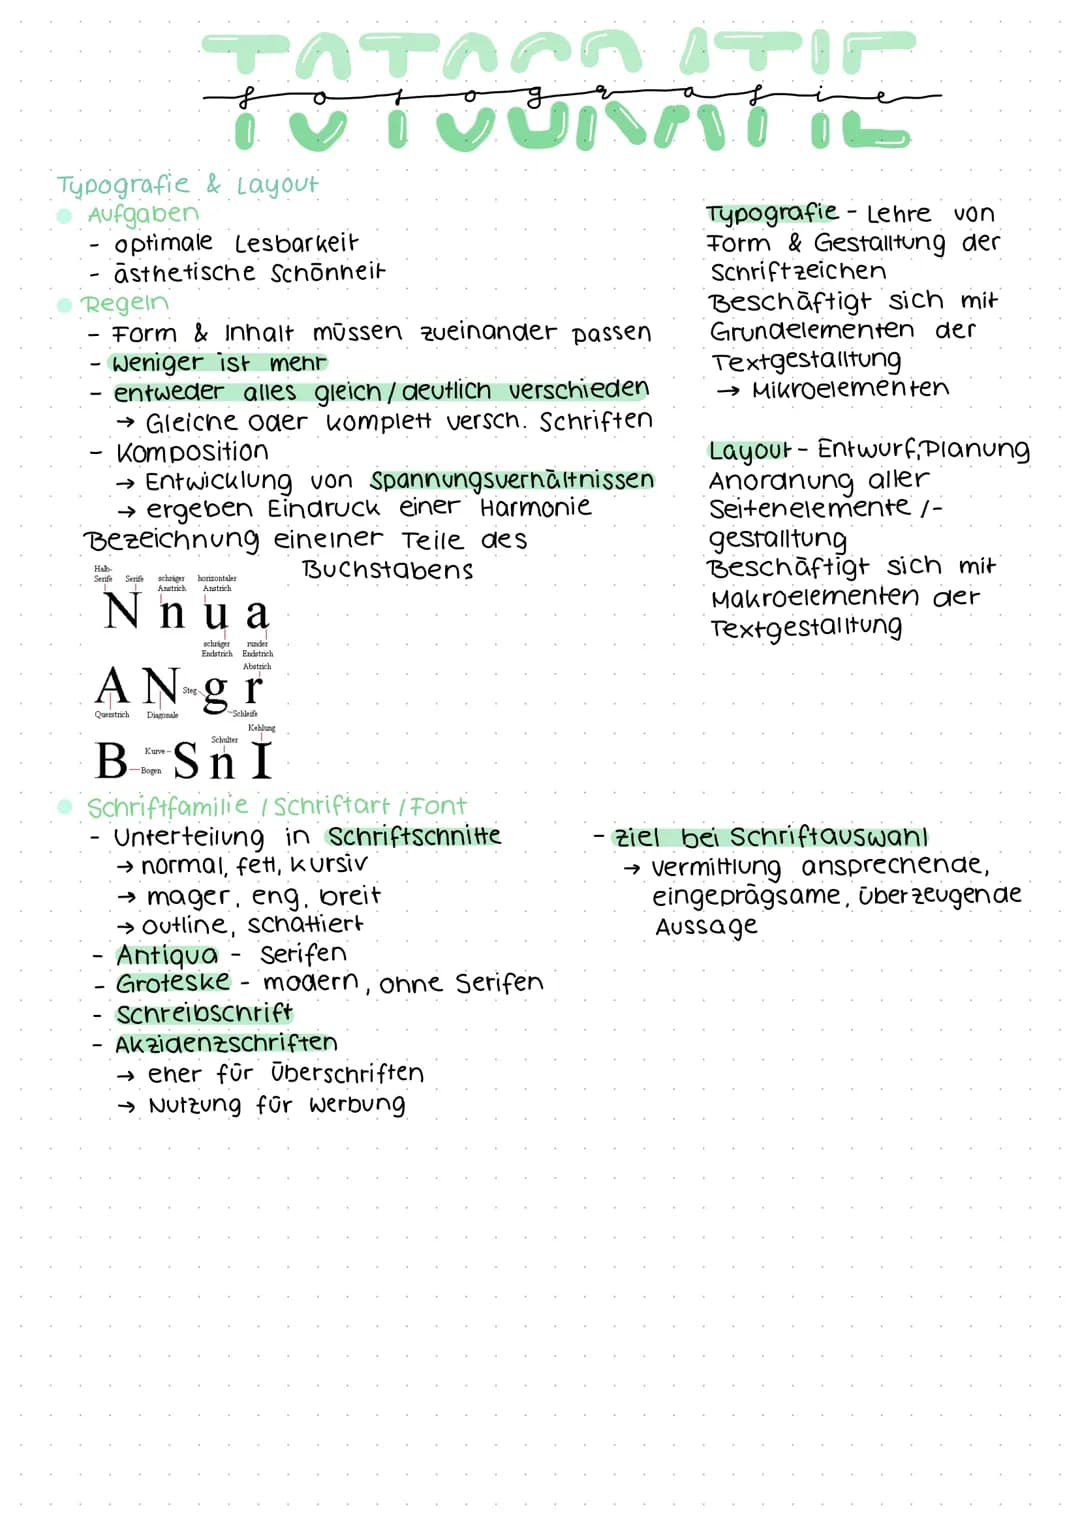 FOTOGRAFIE
fotografie
Typografie & Layout
Aufgaben
- optimale Lesbarkeit
- ästhetische Schönheit
Regeln
- Form & Inhalt müssen zueinander passen
- weniger ist mehr
- entweder alles gleich / deutlich verschieden
→ Gleiche oder komplett versch. Schriften
- Komposition
→ Entwicklung von Spannungsverhältnissen
→ ergeben Eindruck einer Harmonie
Bezeichnung eineiner Teile des
Buchstabens
Halb-
Serife Serife schräger horizontaler
Anstrich Anstrich
N n u a
schräger runder
Endstrich Endstrich
Abstrich
A N Steg g r
Querstrich Diagonale Schleife
Kehlung
Schulter
B Kurve S n I
Bogen
Typografie - Lehre von
Form & Gestalltung der
Schriftzeichen
Beschäftigt sich mit
Grundelementen der
Textgestalltung
→ Mikroelementen
Layout - Entwurf, Planung
Anordnung aller
Seitenelemente /-
gestalltung
Beschäftigt sich mit
Makroelementen der
Textgestalltung
Schriftfamilie / Schriftart / Font
- Unterteilung in Schriftschnitte
→ normal, fett, kursiv
→ mager, eng, breit
→ outline, schattiert
- Antiqua - Serifen
- Groteske - modern, ohne Serifen
- Schreibschrift
- Akzidenzschriften
→ eher für Überschriften
→ Nutzung für Werbung
- Ziel bei Schriftauswahl
→ Vermittlung ansprechende,
eingeprägsame, überzeugende
Aussage